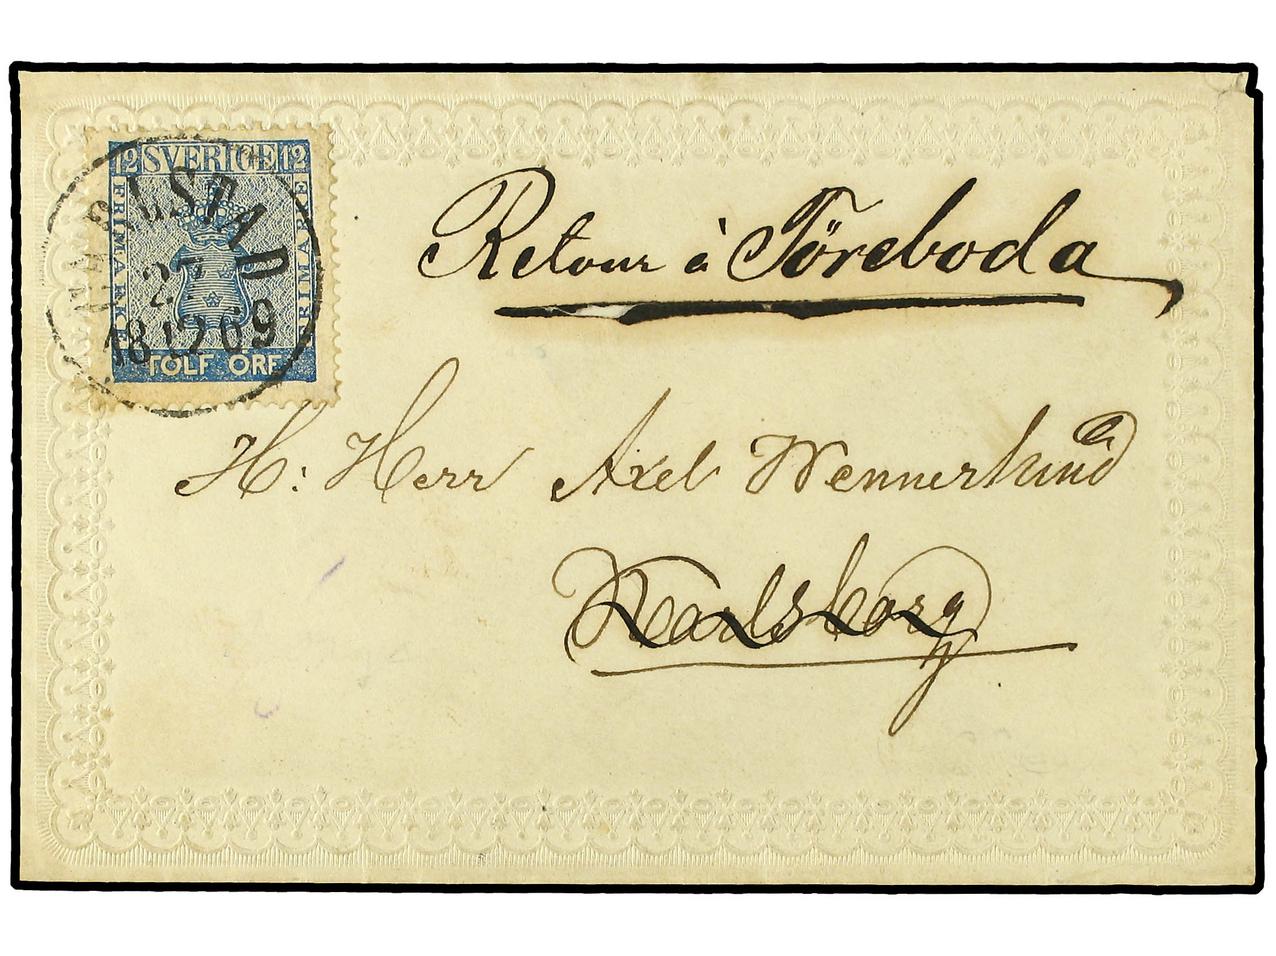 12 SVERIGE 12
FRIMÄRKE
FRIMÄRKE
TOLF ÖRE
27
1869
Retour à Töreboda
H: Herr Axel Wennerlund
Karlsborg